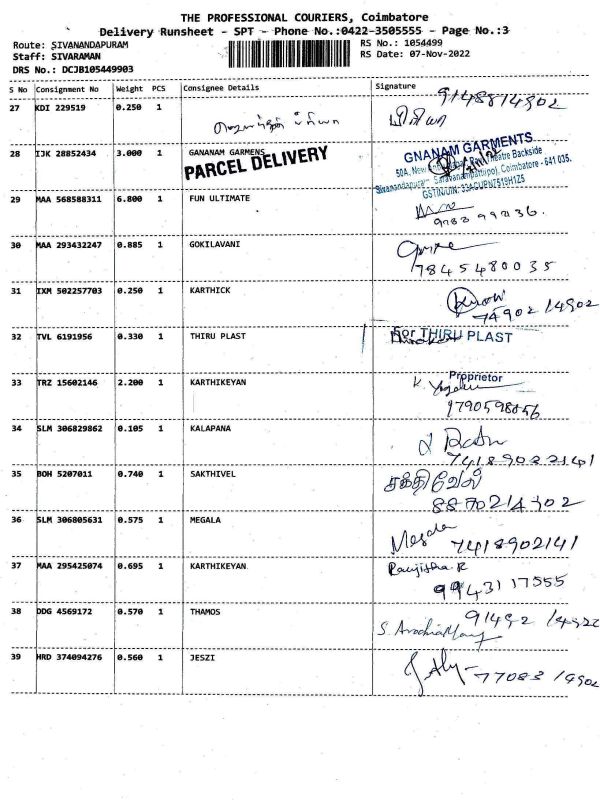 THE PROFESSIONAL COURIERS, Coimbatore
Delivery Runsheet - SPT - Phone No.:0422-3505555 - Page No.:3
Route: SIVANANDAPURAM
RS No.: 1054499
Staff: SIVARAMAN
RS Date: 07-Nov-2022
DRS No.: DCJB105449903
S No Consignment No Weight PCS Consignee Details Signature
27 KDI 229519 0.250 1
பிரியா
28 IJK 28852434 3.000 1 GANANAM GARMENS
PARCEL DELIVERY
GNANAM GARMENTS
Sivanandapuram, Saravanampatti(po), Coimbatore - 641 035.
29 MAA 568588311 6.800 1 FUN ULTIMATE
30 MAA 293432247 0.885 1 GOKILAVANI
7845480035
31 IXM 502257703 0.250 1 KARTHICK
74902 14902
32 TVL 6191956 0.330 1 THIRU PLAST
For THIRU PLAST
Proprietor
33 TRZ 15602146 2.200 1 KARTHIKEYAN
34 SLM 306829862 0.105 1 KALAPANA
35 BOH 5207011 0.740 1 SAKTHIVEL
சக்திவேல்
36 SLM 306805631 0.575 1 MEGALA
Megala
7418902141
37 MAA 295425074 0.695 1 KARTHIKEYAN
Ranjitha.R
9943117555
38 DDG 4569172 0.570 1 THAMOS
39 HRD 374094276 0.560 1 JESZI
77083 14902